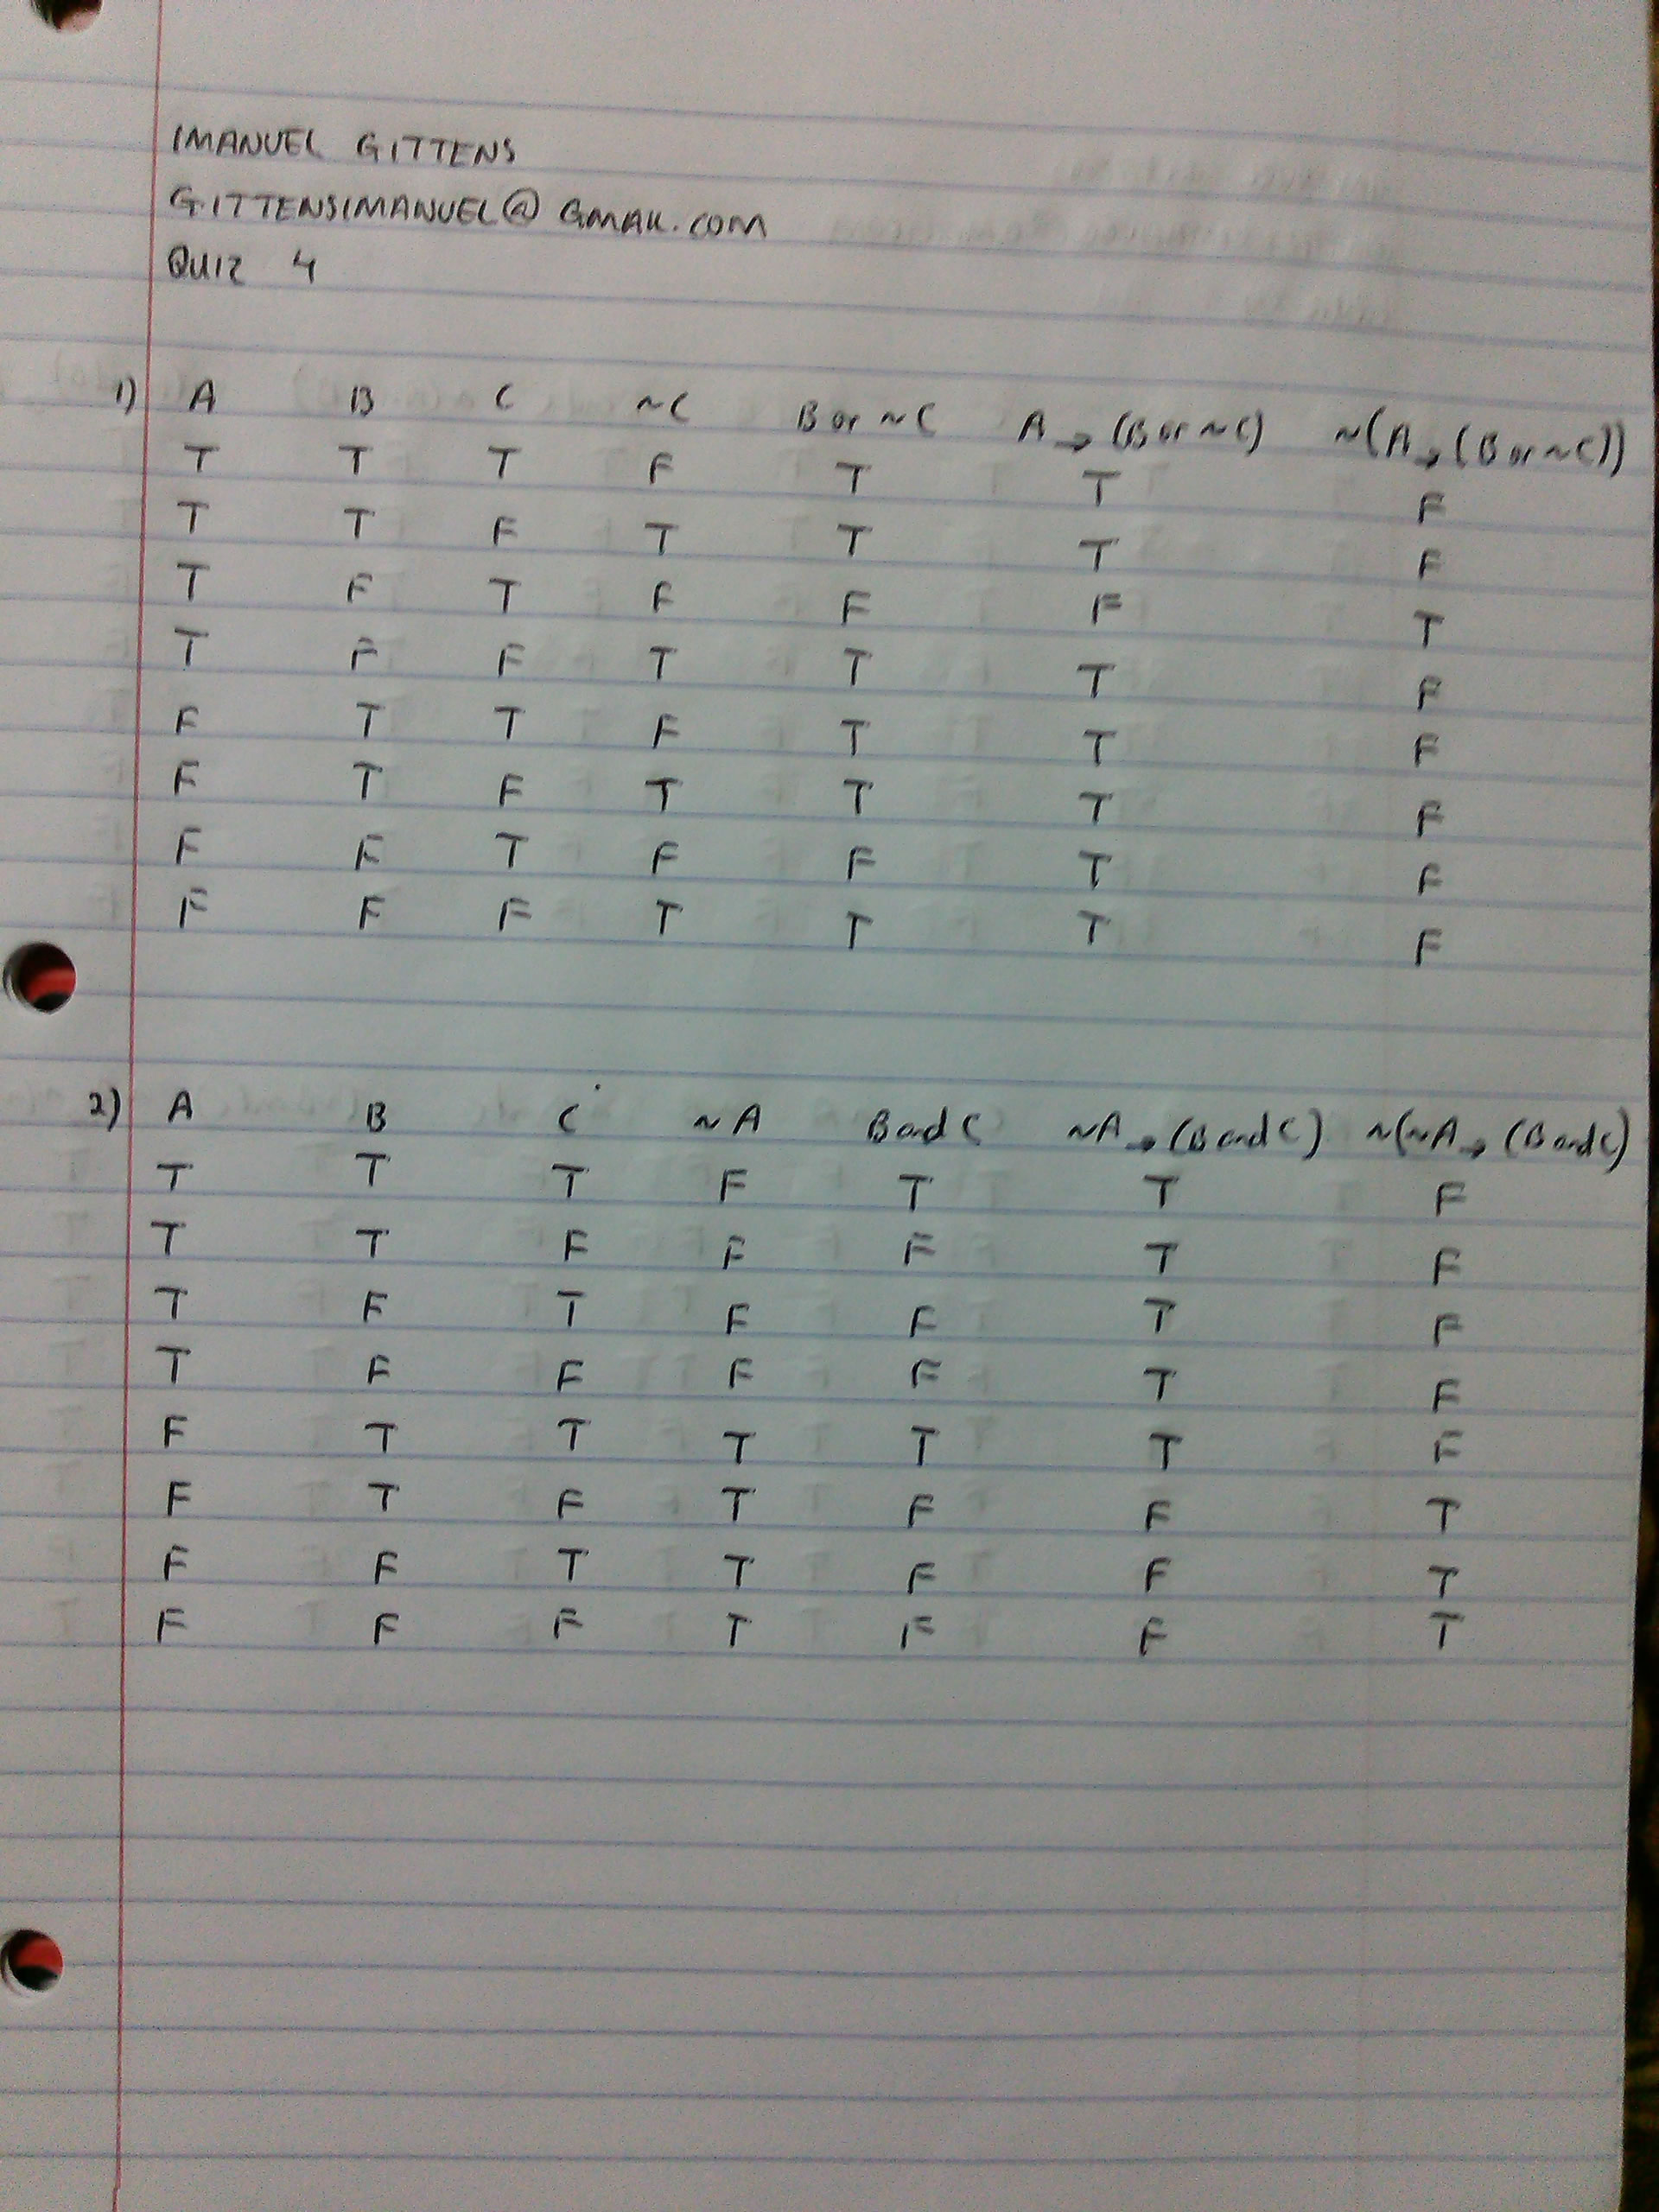 IMANUEL GITTENS
GITTENSIMANUEL@GMAIL.COM
QUIZ 4
1) A B C ~C B or ~C A→(B or ~C) ~(A→(B or ~C))
T T T F T T F
T T F T T T F
T F T F F F T
T F F T T T F
F T T F T T F
F T F T T T F
F F T F F T F
F F F T T T F
2) A B C ~A B and C ~A→(B and C) ~(~A→(B and C)
T T T F T T F
T T F F F T F
T F T F F T F
T F F F F T F
F T T T T T F
F T F T F F T
F F T T F F T
F F F T F F T